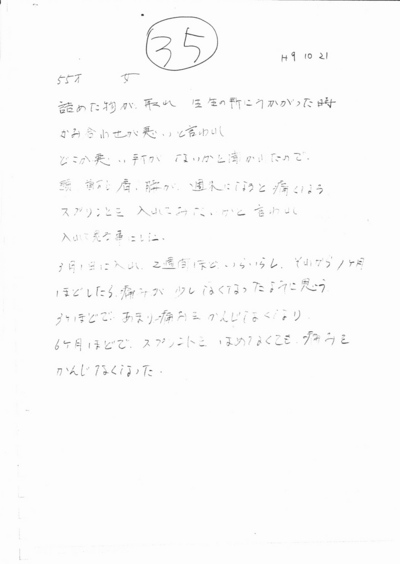 35
H9 10 21
55才 女
詰めた物が、取れ 先生の所にうかがった時
かみ合わせが悪いと言われ
どこか悪い所がないかと聞かれたので、
頭 首 肩、腕が、疲れると痛くなる
スプリントを入れてみたらと言われ
入れて見る事にした。
3月1日に入れ、2週間ほど、いらいらし、それから1ヶ月
ほどしたら、痛みが少しなくなったように思う
3ヶ月ほどで、あまり痛みをかんじなくなり、
6ヶ月ほどで、スプリントをはめなくても、痛みを
かんじなくなった。